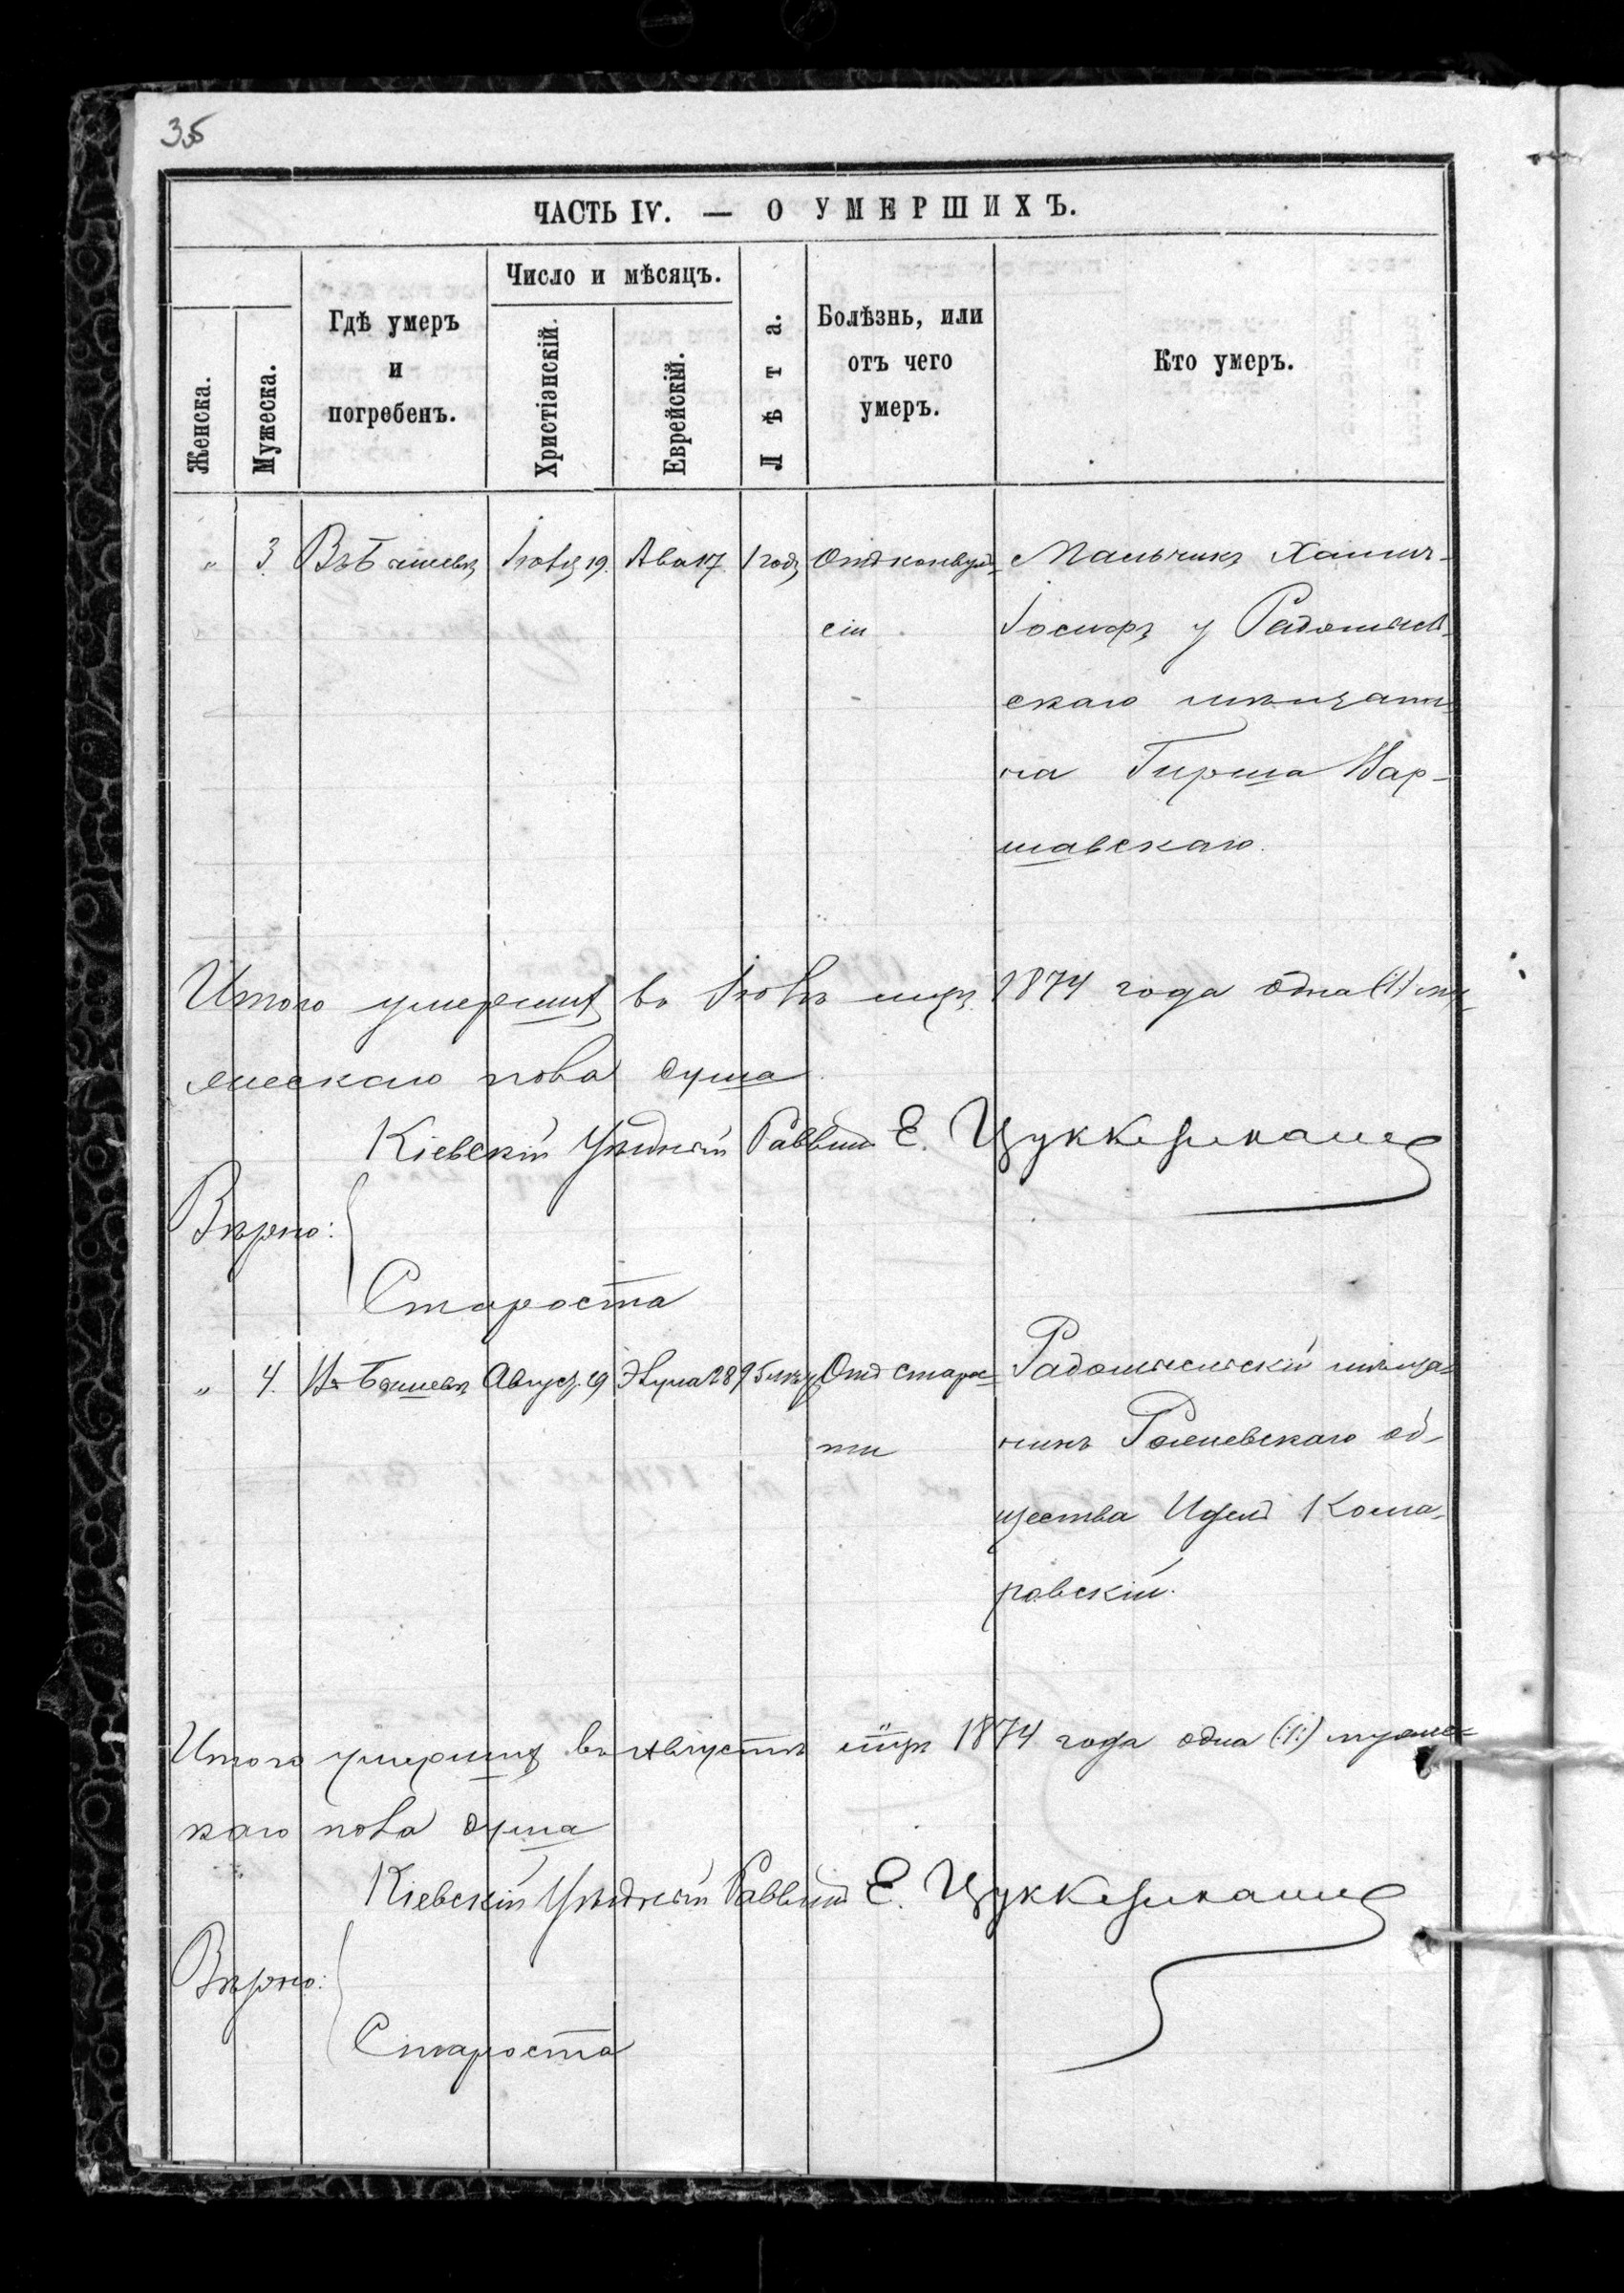 35
ЧАСТЬ IV. — О УМЕРШИХЪ.
Женска.
Мужеска.
Гдѣ умеръ
и
погребенъ.
Число и мѣсяцъ.
Христіанскій.
Еврейскій.
Лѣта.
Болѣзнь, или
отъ чего
умеръ.
Кто умеръ.
„ 3. Въ Бышевѣ Іюля 19. Ава 17 1 годъ Отъ конвуль- Мальчикъ Хаимъ-
сіи Іосифъ у Радомысль-
скаго мѣщани-
на Гирша Вар-
шавскаго.
Итого умершихъ въ Іюлѣ мцѣ 1874 года одна (:1:) му-
жескаго пола душа.
Кіевскій Уѣздный Раввинъ Е. Цуккерманъ
Вѣрно:
Староста
„ 4. Въ Бышевѣ Август. 19 Элула 18 95 лѣтъ Отъ старос- Радомысльскій мѣща-
ти нинъ Рожевскаго об-
щества Идель Кома-
ровскій.
Итого умершихъ въ Августѣ мцѣ 1874 года одна (:1:) мужес-
каго пола душа
Кіевскій Уѣздный Раввинъ Е. Цуккерманъ
Вѣрно:
Староста